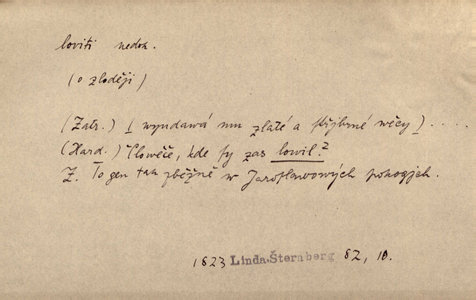 loviti nedok.
(o zloději)
(Zatr.) [ wyndawá mu zlaté a stříbrné wěcy ] ....
(Hard.) Člowěče, kde sy zas lowil?
Z. To gen tak zběžně w Jaroslawowých pokogjch.
1823 Linda.Šternberg 82, 10.